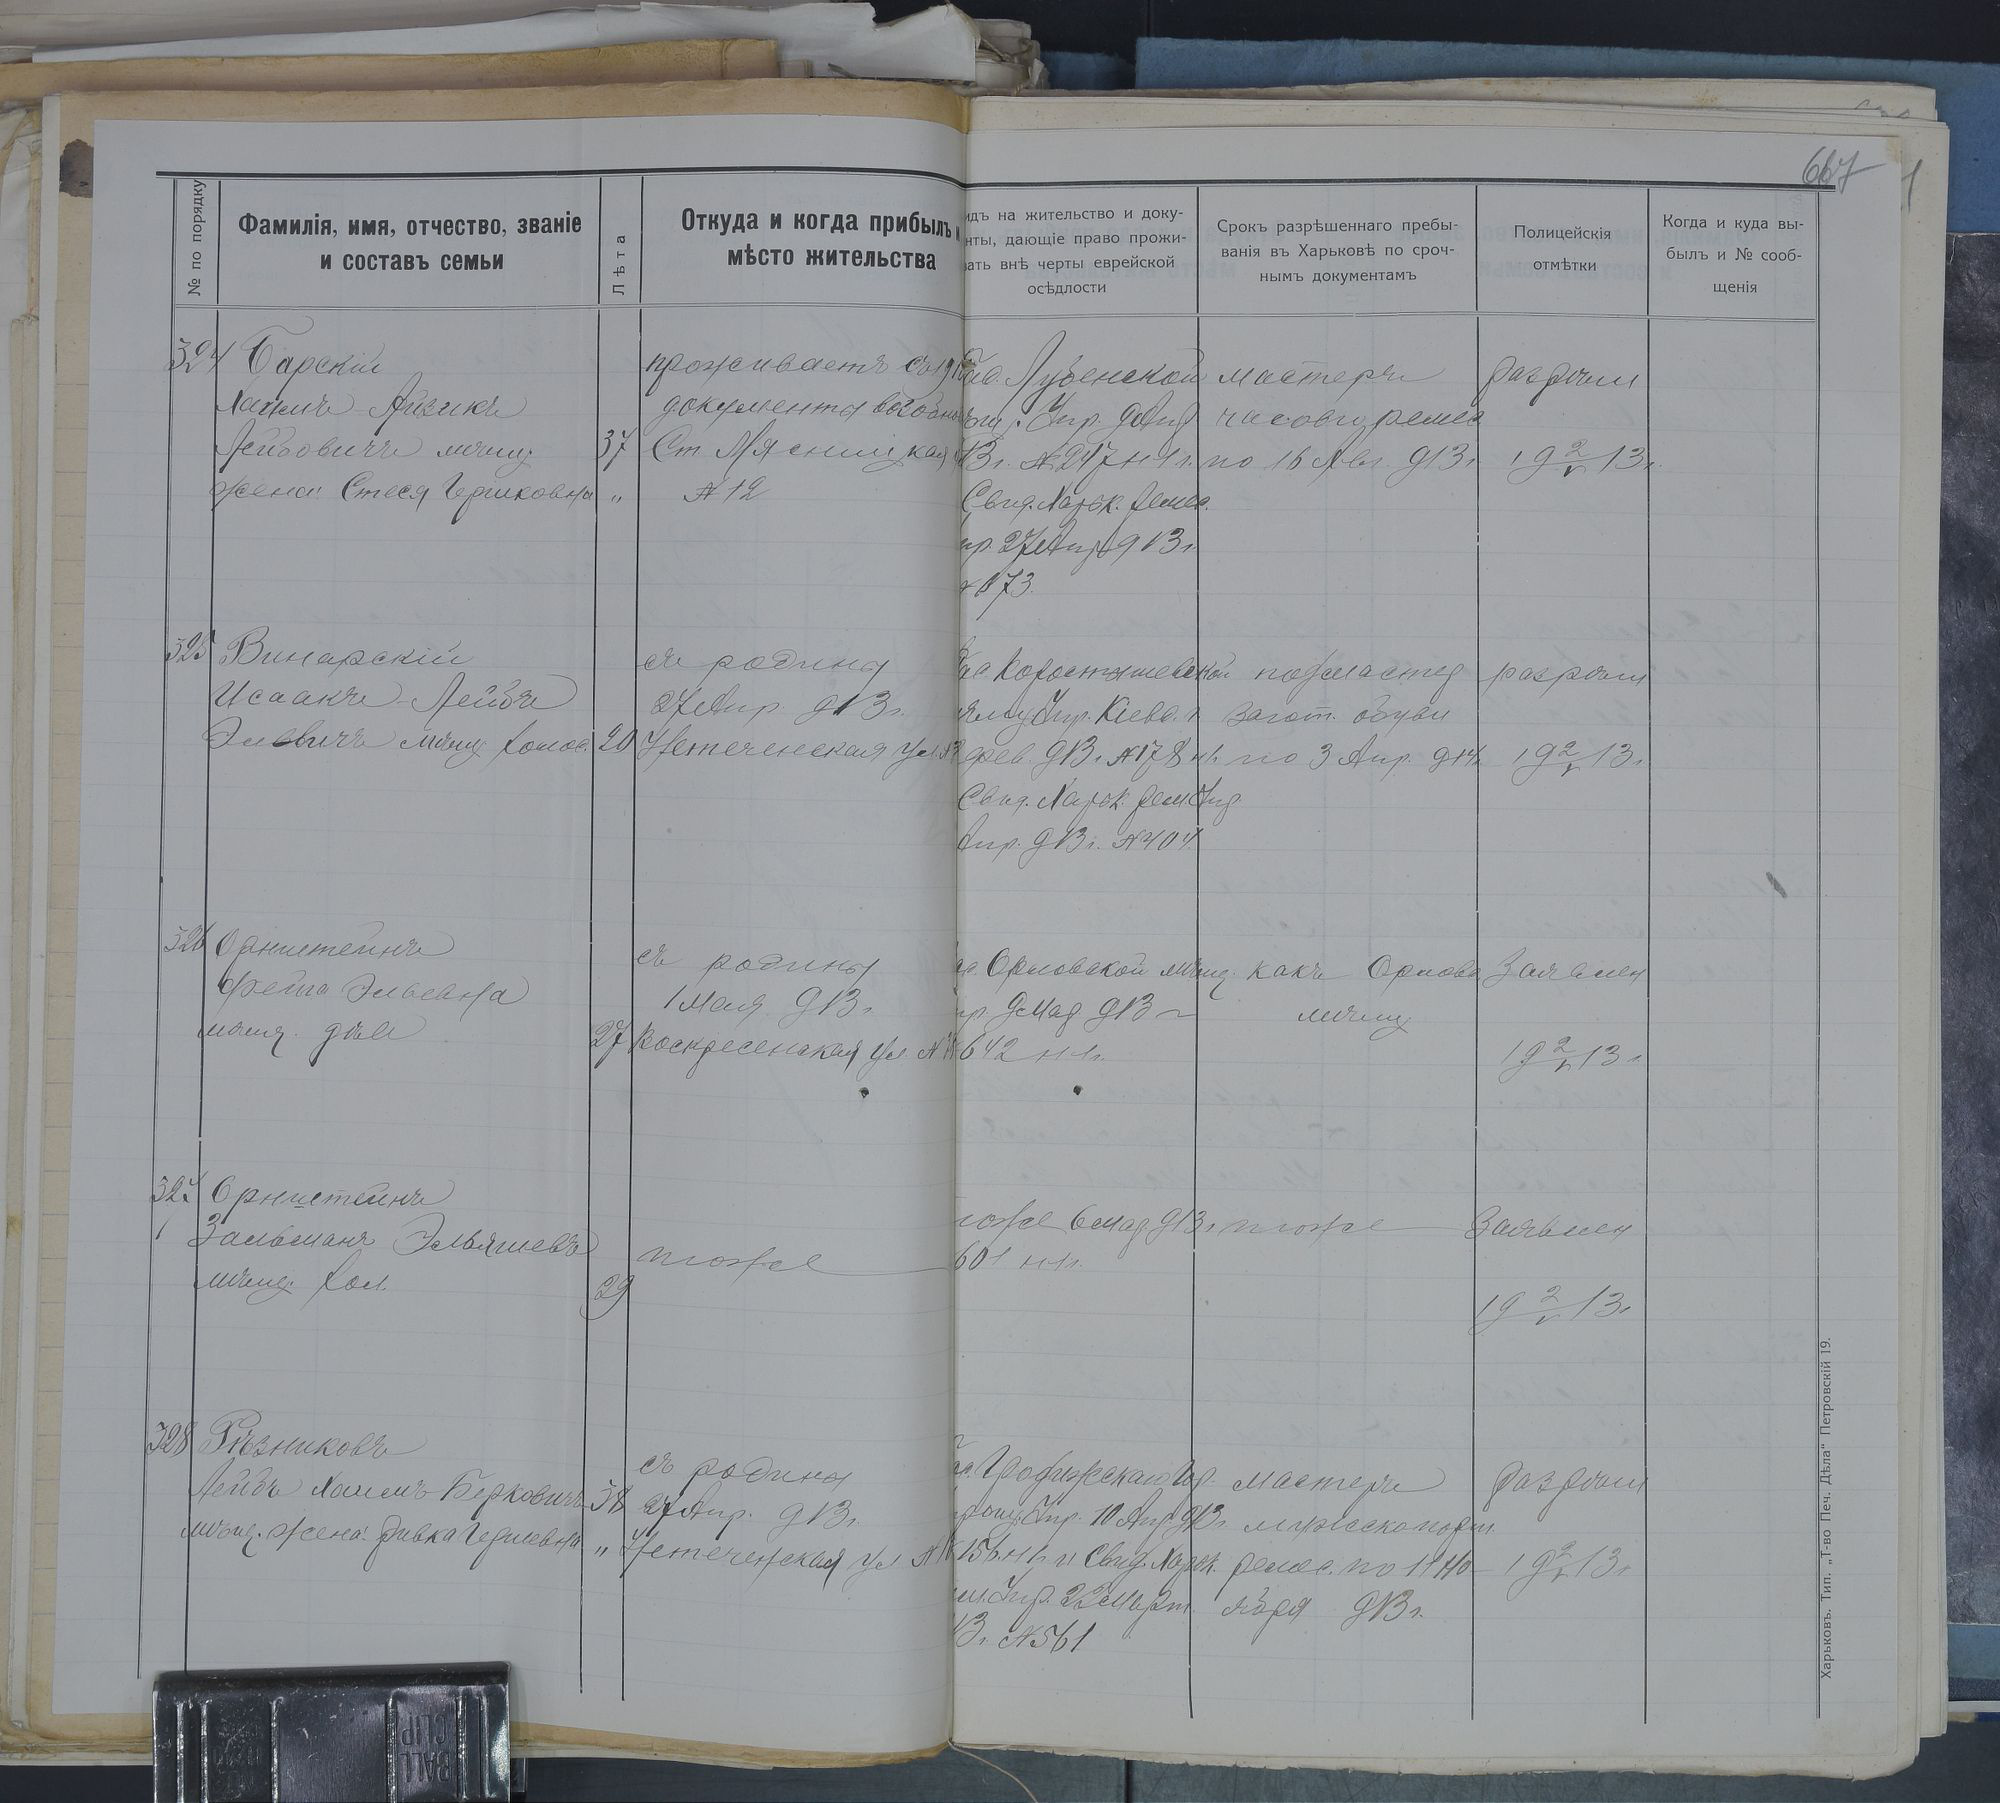 667
№ по порядку
Фамилія, имя, отчество, званіе
и составъ семьи
Лѣта
Откуда и когда прибылъ и
мѣсто жительства
идъ на жительство и доку-
нты, дающіе право прожи-
вать внѣ черты еврейской
осѣдлости
Срокъ разрѣшеннаго пребы-
ванія въ Харьковѣ по сроч-
нымъ документамъ
Полицейскія
отмѣтки
Когда и куда вы-
былъ и № сооб-
щенія
324
Барскій
Хаимъ Айзикъ
Лейбовичъ мѣщ
жена: Стеся Гершковна
37
"
проживаетъ съ
документы
Ст. Мясницкая
№ 12
Лубенской
Упр.
13 г. № 247 н 1 г.
Свид. Харьк. ремес.
пр. 27 Апр 913 г.
№ 173.
мастеръ
часовой ремес
по 16 Авг. 913 г.
разрѣшен
19 2/V 13 г.
325
Винарскій
Исаакъ-Лейбъ
Элевичъ мѣщ. холос.
20
съ родины
27 Апр. 913 г.
Нетеченская ул.
Коростышевской
Упр. Кіевс. г.
фев. 913 г. № 178 н 1 г.
Свид. Харьк. рем. Упр
Апр. 913 г. № 404
подмастер
загот. обуви
по 3 Апр. 914 г.
разрѣшен
19 2/V 13 г.
326
Орнштейнъ
Фейга Эльевна
мѣщ. дѣв
27
съ родины
1 мая 913 г.
Воскресенская ул. №
Орловской мѣщ.
642 н 1 г.
какъ Орлова
мѣщ
Заявлен
19 2/V 13 г.
327
Орнштейнъ
Зальманъ Эльяшевъ
мѣщ. хол.
29
тоже
тоже 6 мар 913 г.
601 н 1 г.
тоже
Заявлен
19 2/V 13 г.
328
Рѣзниковъ
Лейбъ Хаимъ Берковичъ
мѣщ. жена: Ривка Гершевна
38
"
съ родины
27 Апр. 913 г.
Нетеченская ул №
Упр. 10 Апр 913 г.
156 н 1 г. и Свид. Харьк.
Упр. 22 Март.
13 г. № 561
мастеръ
мужеско порт.
ремес. по 11 Но-
ября 913 г.
разрѣшен
19 2/V 13 г.
Харьковъ. Тип. „Т-во Печ. Дѣла“ Петровскій 19.
BALL
CLIP